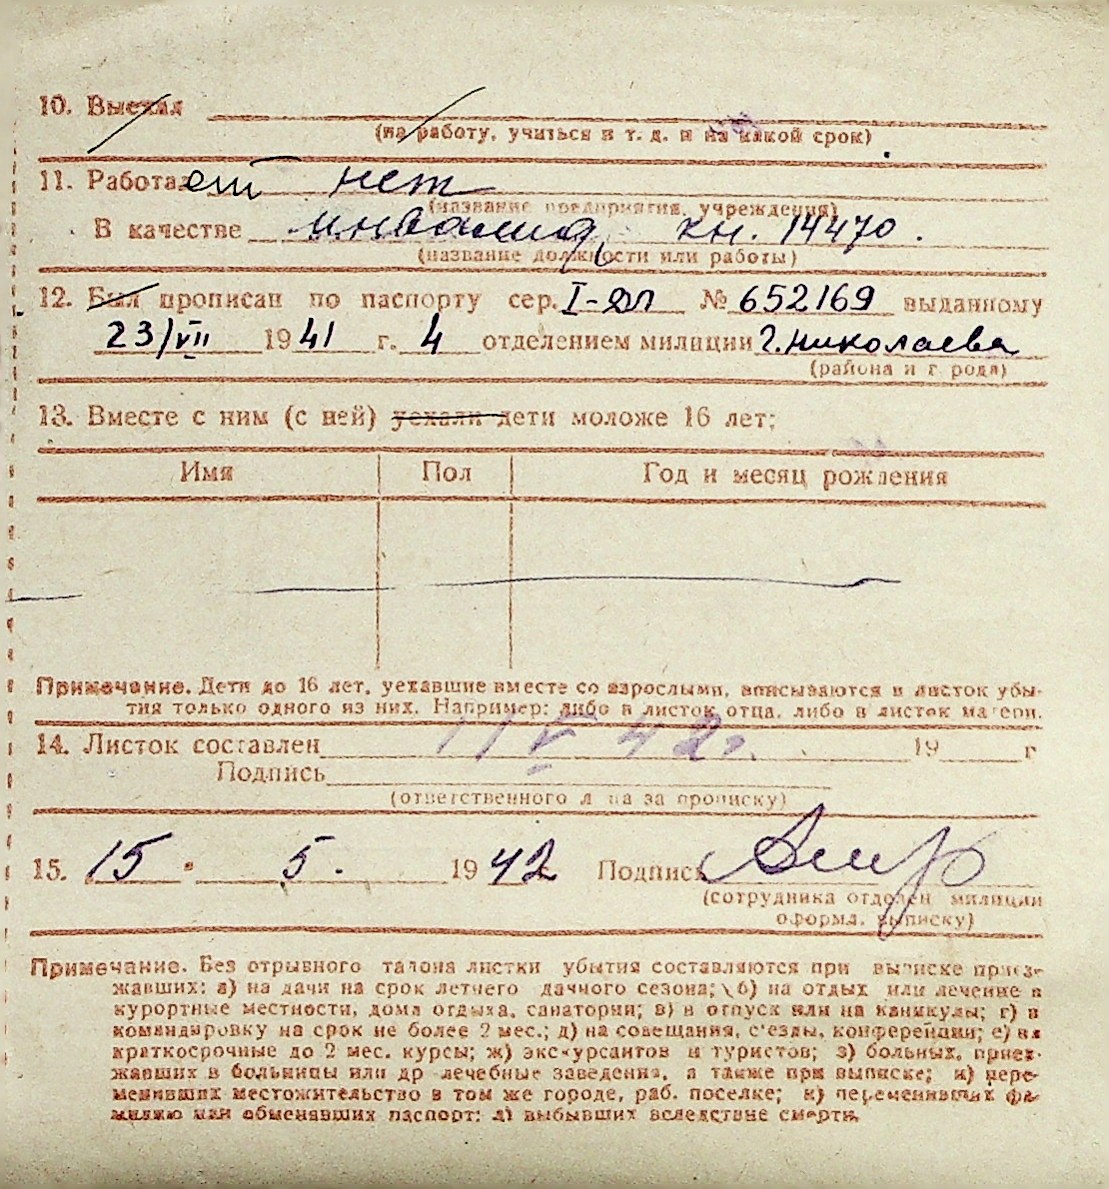 10. Выехал
(на работу, учиться и т. д. и на какой срок)
11. Работает нет
(название предприятия, учреждения)
В качестве инвалид, кн. 14470.
(название должности или работы)
12. Был прописан по паспорту сер. I-ЯП № 652169 выданному
23/VII 1941 г. 4 отделением милиции г. Николаева
(района и г рода)
13. Вместе с ним (с ней) уехали дети моложе 16 лет;
Имя Пол Год и месяц рождения
Примечание. Дети до 16 лет, уехавшие вместе со взрослыми, вписываются в листок убы-
тия только одного из них. Например: либо в листок отца, либо в листок матери.
14. Листок составлен 11 V 42г. 19 г
Подпись
(ответственного л ца за прописку)
15. 15. 5. 1942 Подпись
(сотрудника отделен милиции
оформл. выписку)
Примечание. Без отрывного талона листки убытия составляются при выписке приез-
жавших: а) на дачи на срок летнего дачного сезона; б) на отдых или лечение в
курортные местности, дома отдыха, санатории; в) в отпуск или на каникулы; г) в
командировку на срок не более 2 мес.; д) на совещания, с'езды, конференции; е) на
краткосрочные до 2 мес. курсы; ж) экскурсантов и туристов; з) больных, приез-
жавших в больницы или др лечебные заведения, а также при выписке; и) пере-
менивших местожительство в том же городе, раб. поселке; к) переменивших фа-
милию или обменявших паспорт; л) выбывших вследствие смерти.